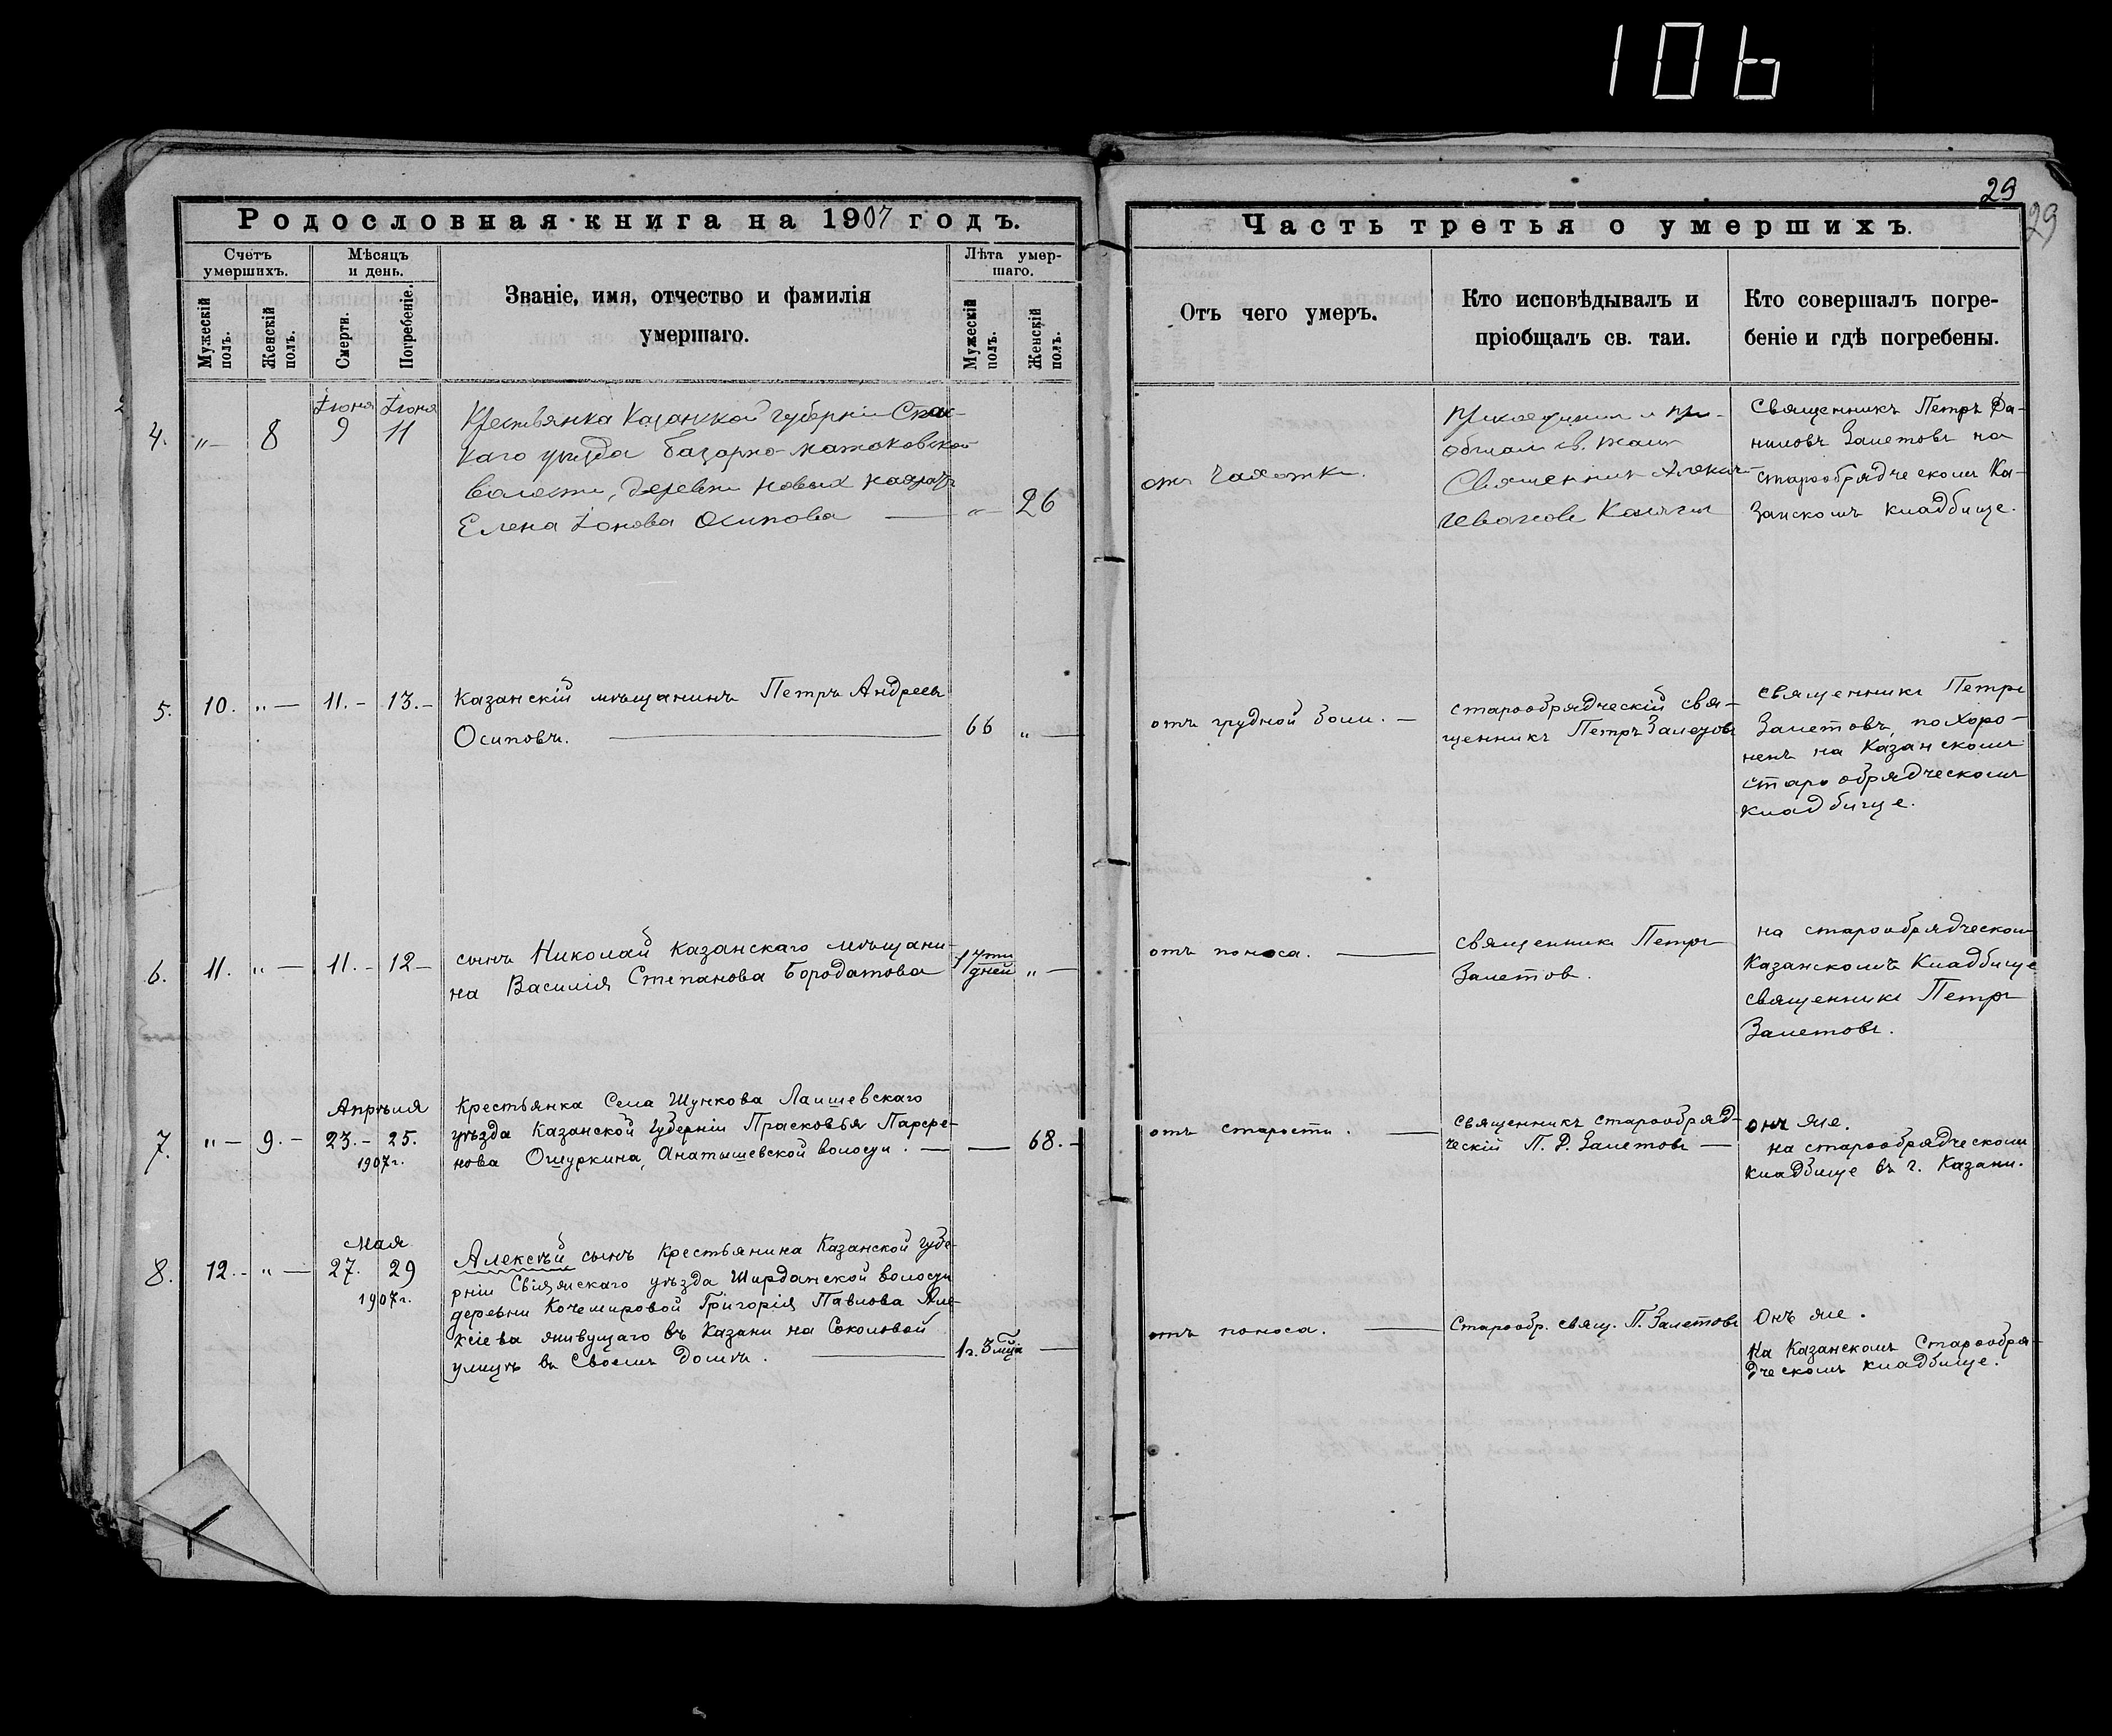 106
29
29
Родословная книга на 1907 годъ.
Счетъ умершихъ.
Мужескій полъ.
Женскій полъ.
Мѣсяцъ и день.
Смерти.
Погребеніе.
Званіе, имя, отчество и фамилія
умершаго.
Лѣта умер-
шаго.
Мужескій полъ.
Женскій полъ.
Часть третья о умершихъ.
Отъ чего умеръ.
Кто исповѣдывалъ и
пріобщалъ св. таи.
Кто совершалъ погре-
беніе и гдѣ погребены.
4. „— 8 Іюня 9 Іюня 11
Крестьянка Казанской губерніи Спас-
каго уѣзда Базарно-матаковской
волости, деревни Новыхъ
Елена Іонова Осипова — „— 26
отъ Чахотки.
св. таин
Священник
Иванов
Священникъ Петръ Да-
ниловъ Залетовъ на
старообрядческомъ Ка-
занскомъ кладбище.
5. 10. „— 11.— 13.—
Казанскій мѣщанинъ Петръ Андреевъ
Осиповъ. — 66 „—
отъ грудной боли. —
старообрядческій свя-
щенникъ Петръ Залетовъ
священникъ Петръ
Залетовъ, похоро-
ненъ на Казанскомъ
старообрядческомъ
кладбище.
6. 11. „— 11.— 12—
сынъ Николай Казанскаго мѣщани-
на Василія Степанова Бородатова
17ти дней „—
отъ поноса. —
священникъ Петръ
Залетов.
на старообрядческом
Казанскомъ Кладбище
священникъ Петръ
Залетовъ.
7. „— 9.— Апрѣля 23.— 25. 1907г.
Крестьянка Села Шункова Лаишевскаго
уѣзда Казанской Губерніи Прасковья Парфе-
нова Ошуркина, Анатышевской волости. — — 68.—
отъ старости. —
священникъ старообряд-
ческій П. Д. Залетовъ —
онъ же.
на старообрядческомъ
кладбище въ г. Казани.
8. 12.— „— Мая 27. 29 1907г.
Алексѣй, сынъ Крестьянина Казанской губе-
рніи Свіяжскаго уѣзда Ширданской волости
деревни Кочемировой Григорія Павлова Але-
ксіева живущаго въ Казани на Соколовой
улицѣ въ Своемъ домѣ. — 1г. 3 мца —
отъ поноса. —
Старообр. свящ. П. Залетовъ
Онъ же.
На Казанскомъ Старообря-
дческомъ кладбище.